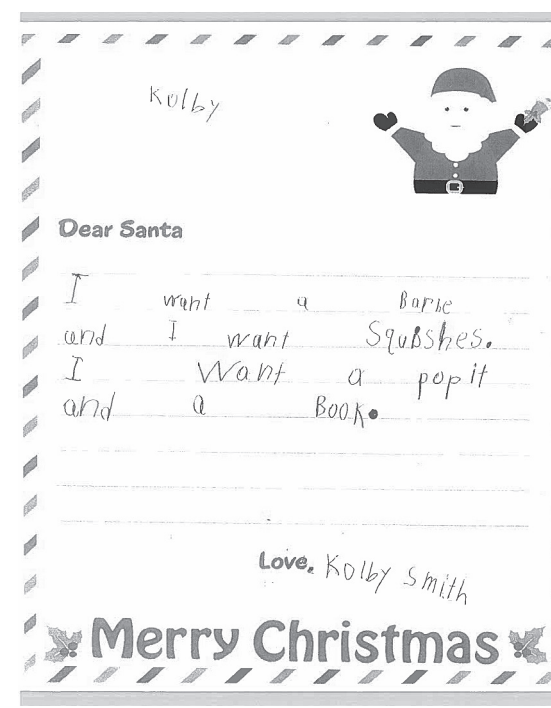 Kolby
Dear Santa
I want a Barbe
and I want Squbshes.
I Want a pop it
and a Book.
Love, Kolby Smith
Merry Christmas